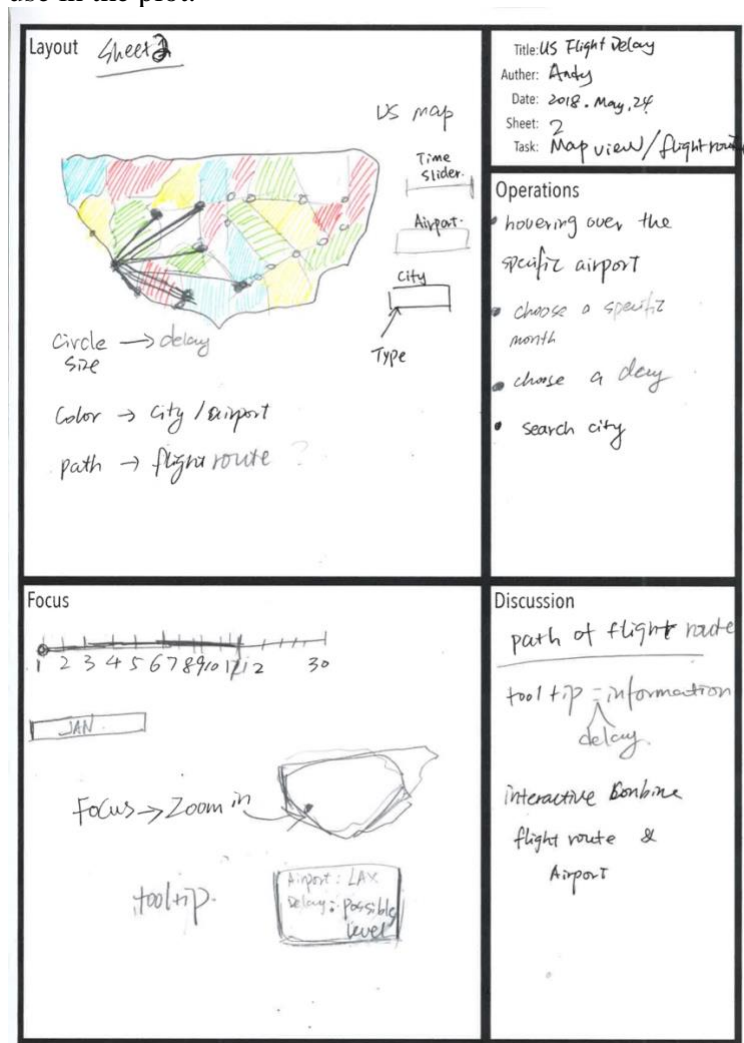 use in the plot.
Layout Sheet 2
US map
Time
Slider.
Airport.
City
Type
Circle → delay
size
Color → City / airport
path → flight route ?
Title: US Flight Delay
Auther: Andy
Date: 2018. May, 24
Sheet: 2
Task: Map view / flight route
Operations
hovering over the
specific airport
choose a specific
month
choose a day
search city
Focus
1 2 3 4 5 6 7 8 9 10 11 12 30
JAN.
Focus → Zoom in
tooltip.
Airport: LAX
Delay: possible
level
Discussion
path of flight route
tooltip = information
delay.
interactive Bonbine
flight route &
Airport